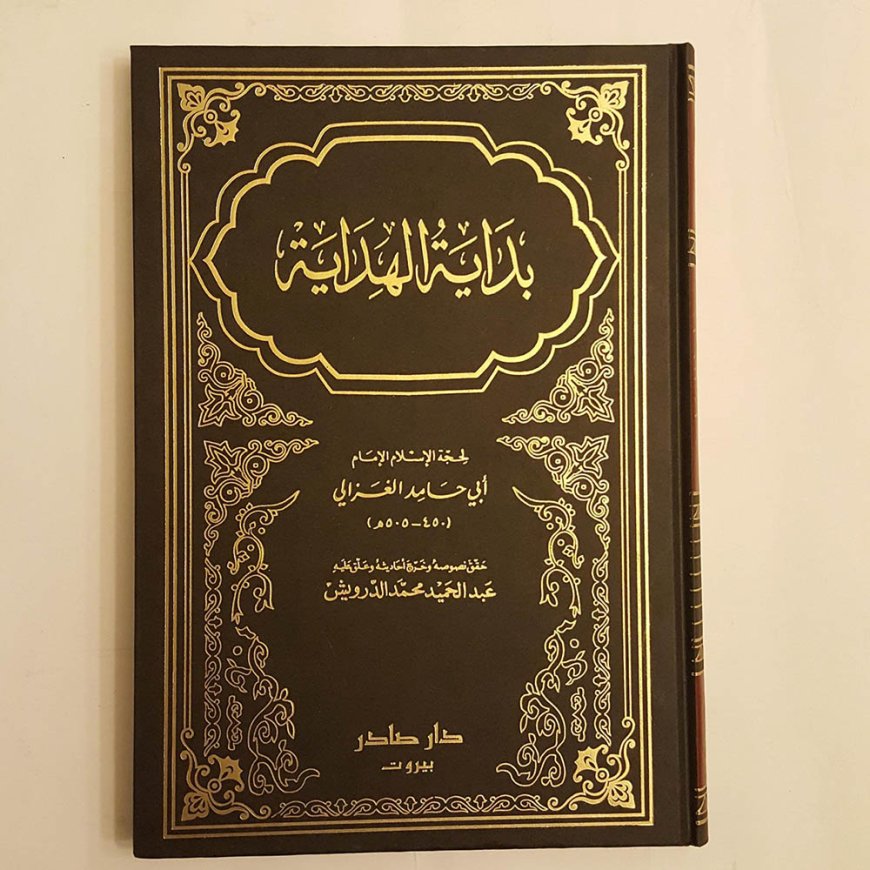 بِدَايَةُ الهِدَايَة
لِحجّة الإسلام الإمَام
أبي حَامِد الغَزالي
(٤٥٠-٥٠٥ه)
حَقّقَ نصُوصهُ وخَرّجَ أحَاديثهُ وعَلّق عَليْه
عَبد الحَميْد محمّد الدّرويشْ
دار صادر
بيروت